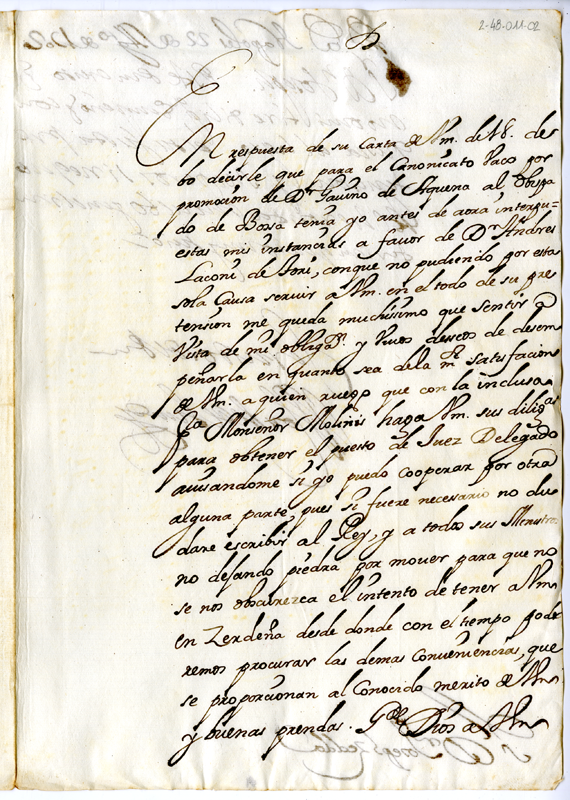 2-48-011-02
En respuesta de su Carta de Vm. de 18. de-
bo decirle que para el Canonicato Vaco por
promoción de Dn Gavino de Aquena al Obispa
do de Bossa tenia yo antes de aora interpu-
estas mis instancias a favor de Dn Andres
Laconi de Sori, conque no pudiendo por esta
sola Causa servir a Vm. en el todo de su pre
tension me queda muchissimo que sentir a
Vista de mi obligan. y Vivos deseos de desem
peñarla en quanto sea dela mr satisfacion
de Vm. a quien ruego que con la inclusa
Pa Monseñor Molinis haga Vm. sus diligas
para obtener el puesto de Juez Delegado
avisandome si yo puedo cooperar por otra
alguna parte, pues si fuere necesario no du
dare escribir al Rey, y a todos sus Ministros
no dejando piedra por mover para que no
se nos obscurezca el intento de tener a Vm
en Zerdeña desde donde con el tiempo pode
remos procurar las demas Conveniencias, que
se proporcionan al Conocido merito de Vm
y buenas prendas. Gde Dios a Vm